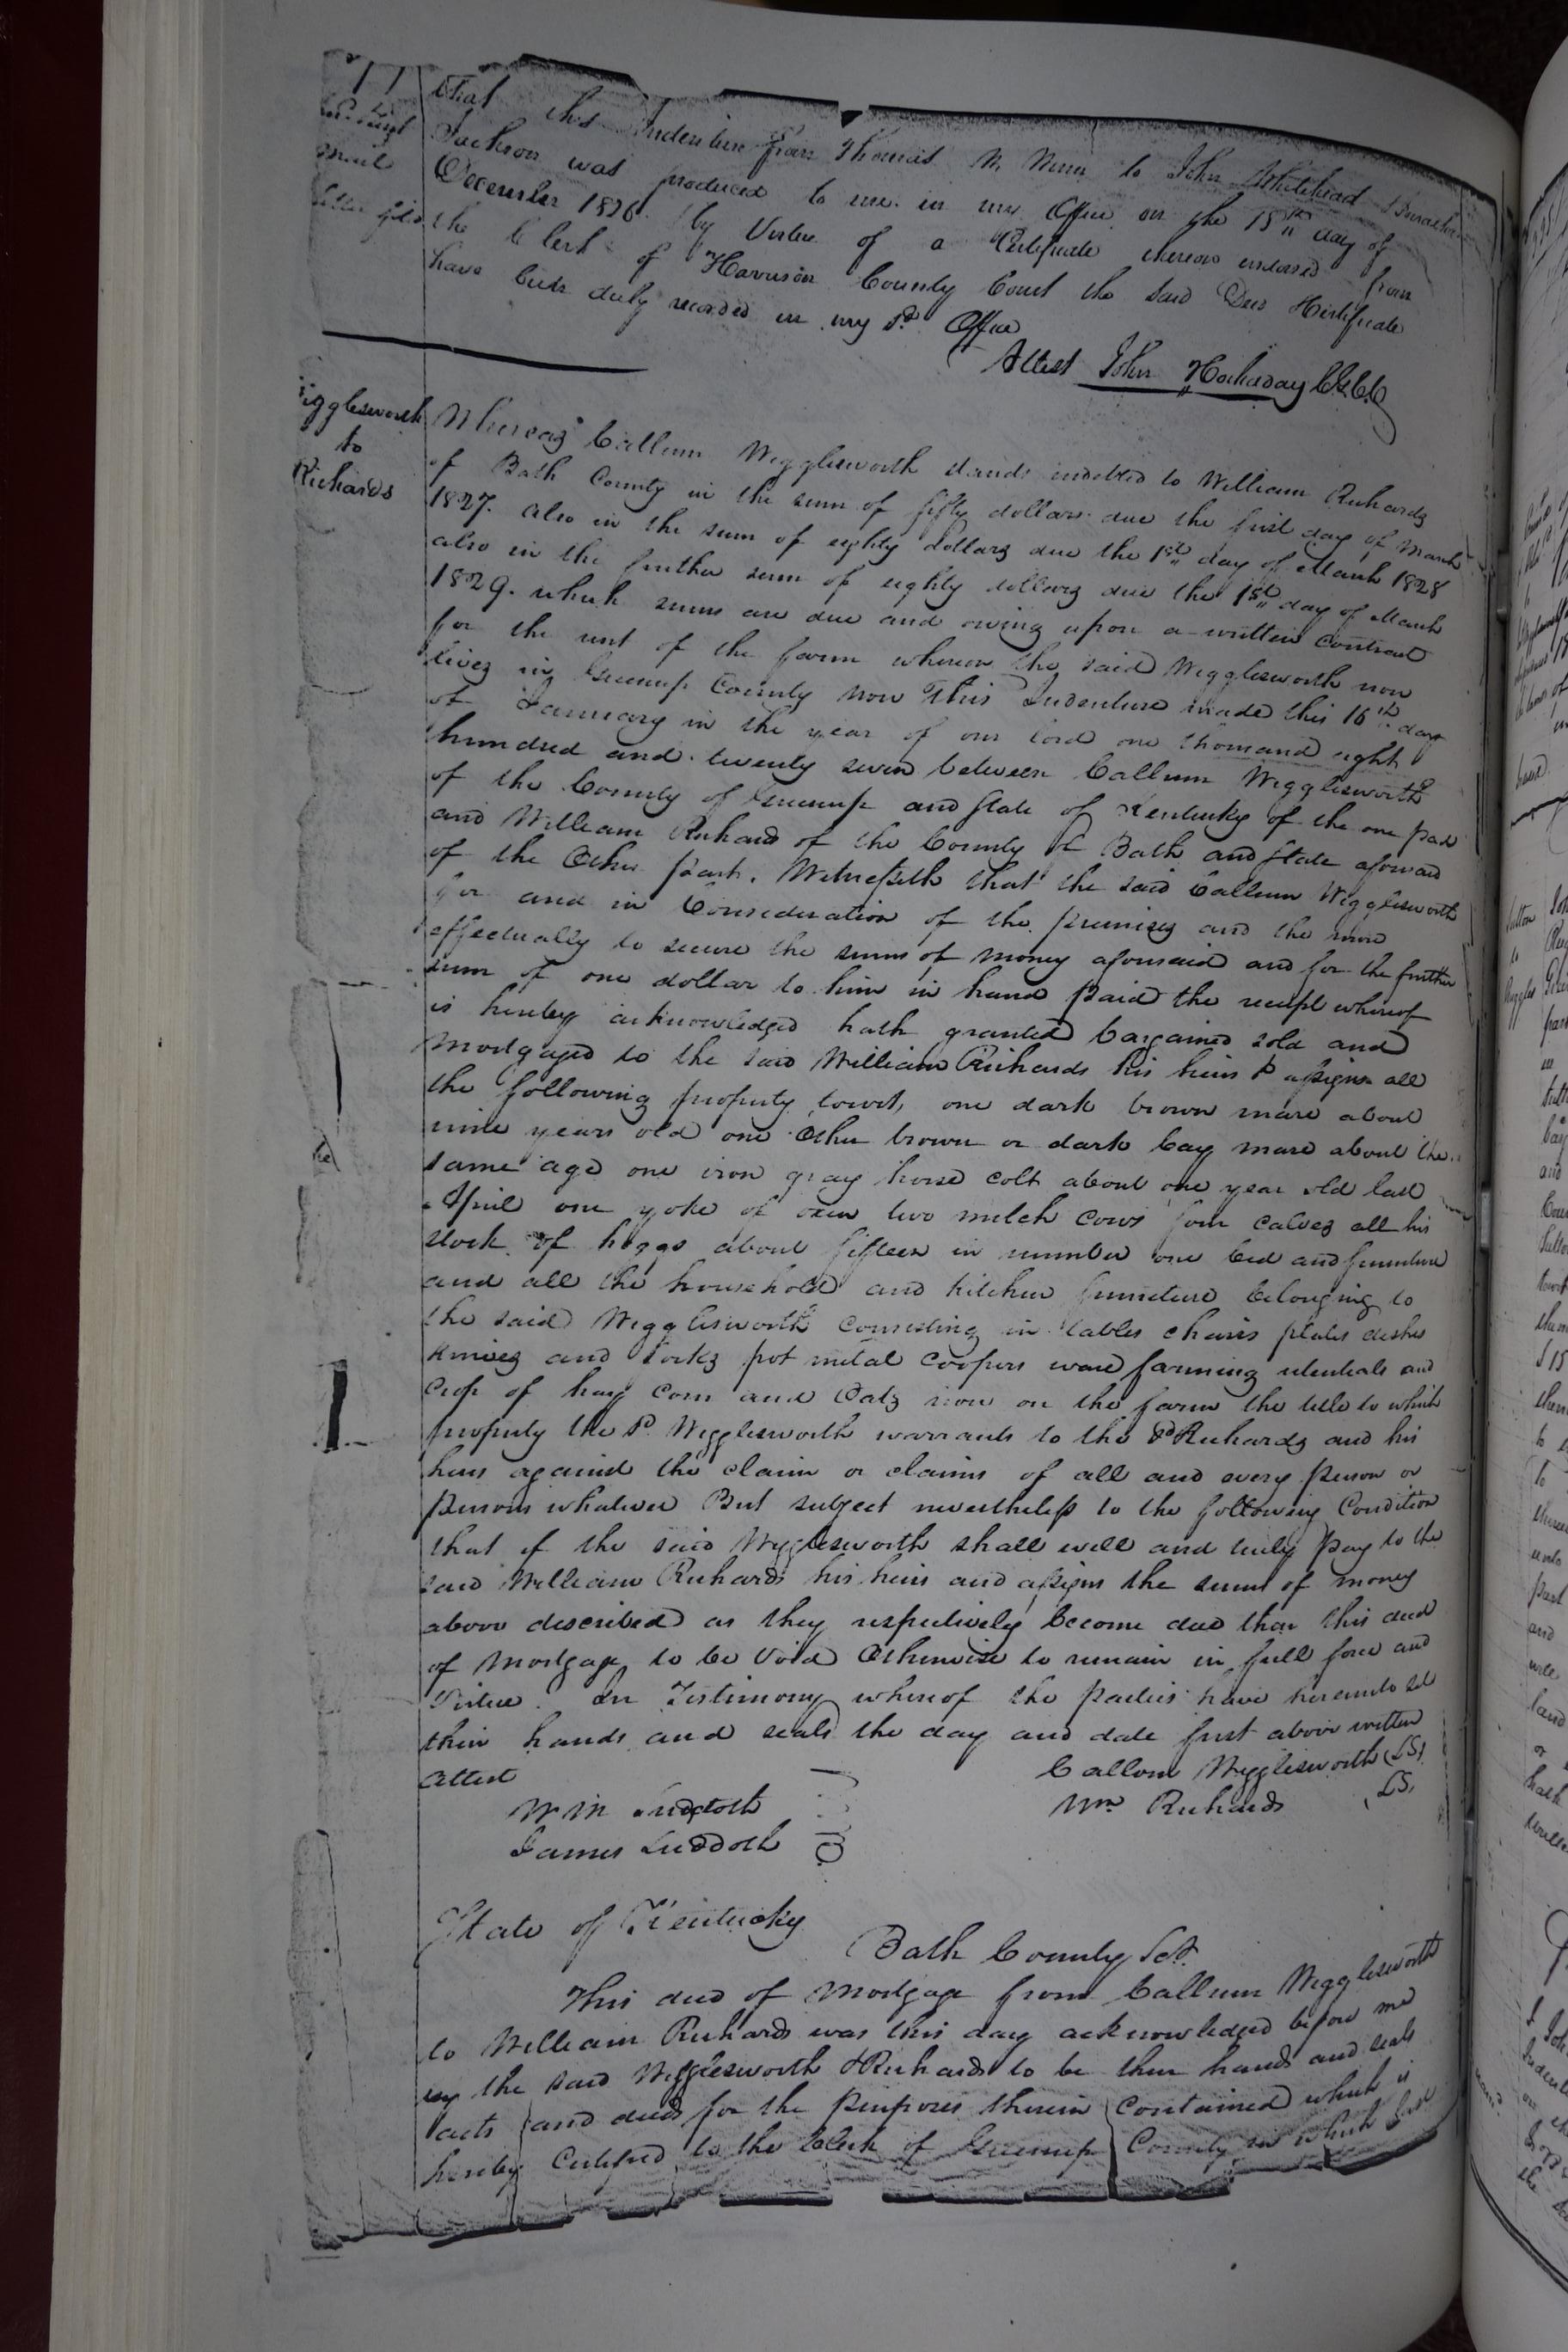 that this Indenture from Thomas M. to John Whitehead
Jackson was produced to me in my Office on the 15th day of
December 1826. by Virtue of a Certificate thereon endorsed from
the Clerk of Harrison County Court the said Deed & Certificate
have been duly recorded in my sd. Office
Attest John Hockaday
Wigglesworth
to
Richards
Whereas Callum Wigglesworth stands indebted to William Richards
of Bath County in the sum of fifty dollars due the first day of March
1827. also in the sum of eighty dollars due the 1st day of March 1828
also in the further sum of eighty dollars due the 1st day of March
1829. which sums are due and owing upon a written contract
for the rent of the farm whereon the said Wigglesworth now
lives in Greenup County now This Indenture made this 16th day
of January in the year of our lord one thousand eight
hundred and twenty seven between Callum Wigglesworth
of the County of Greenup and State of Kentucky of the one part
and William Richard of the County of Bath and State aforesaid
of the Other part. Witnesseth that the said Callum Wigglesworth
for and in Consideration of the premises and the more
effectually to secure the sums of money aforesaid and for the further
sum of one dollar to him in hand paid the receipt whereof
is hereby acknowledged hath granted bargained sold and
mortgaged to the said William Richards his heirs & assigns all
the following property towit, one dark brown mare about
nine years old one Other brown or dark bay mare about the
same age one iron gray horse colt about one year old last
April one yoke of oxen two milch cows four calves all his
stock of hoggs about fifteen in number one bed and furniture
and all the household and kitchen furniture belonging to
the said Wigglesworth consisting in tables chairs plates dishes
knives and forks pot mettal coopers ware farming utentials and
Crop of hay corn and Oats now on the farm the title to which
property the sd. Wigglesworth warrants to the sd Richards and his
heirs against the claim or claims of all and every person or
persons whatever But subject nevertheless to the following Condition
that if the said Wigglesworth shall well and truly pay to the
said William Richards his heirs and assigns the sums of money
above described as they respectively become due then this deed
of Mortgage to be Void Otherwise to remain in full force and
Virtue. In Testimony whereof the parties have hereunto set
their hands and seals the day and date first above written
Attest
Callom Wigglesworth (LS)
W M Suddoth
Wm Richards (LS)
James Suddoth
State of Kentucky
Bath County Sct.
This deed of Mortgage from Callum Wigglesworth
to William Richards was this day acknowledged before me
by the said Wigglesworth & Richards to be their hands and seals
acts and deeds for the purposes therein contained which is
hereby Certified to the Clerk of Greenup County in which